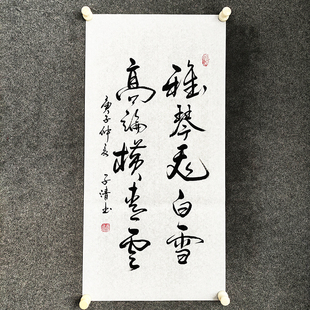 雅琴飛白雪
高論橫青雲
庚子仲夏 子清书